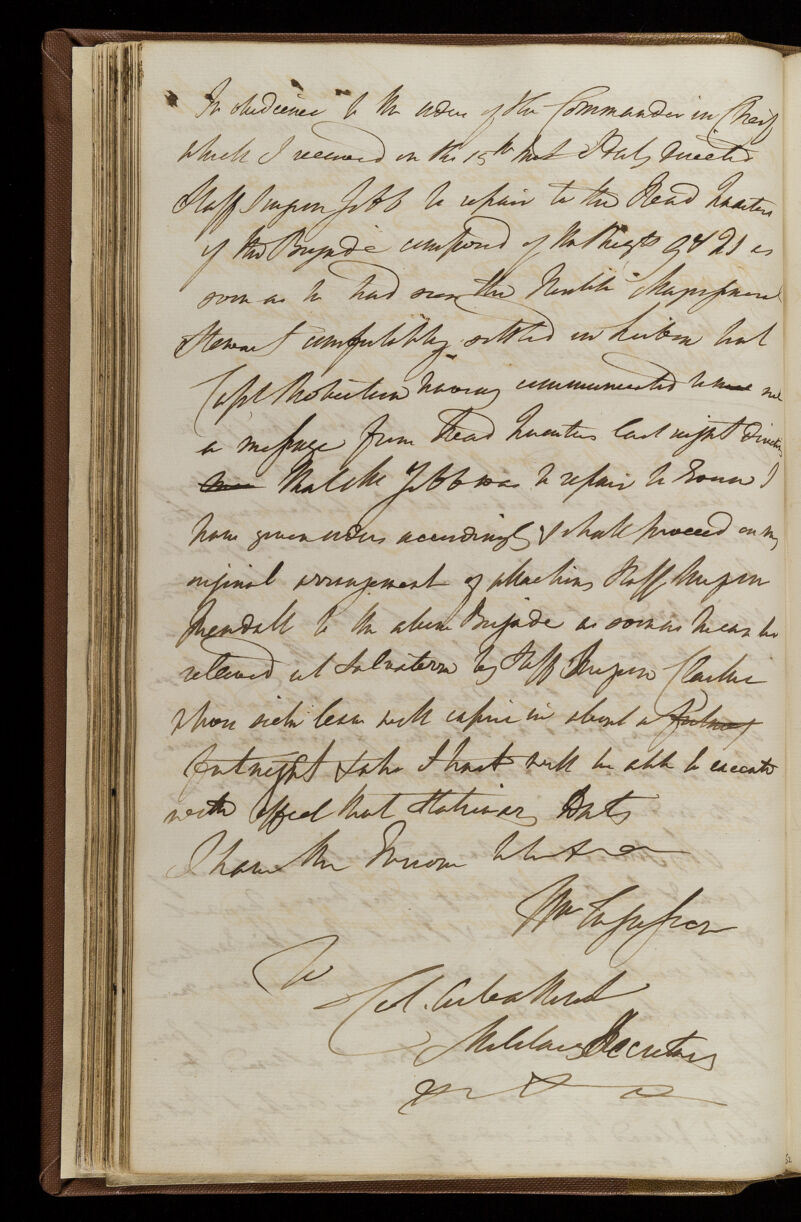 In obedience to the order of the Commander in Cheif
which I received on the 15th Inst I duly directed
Staff Surgeon Jebb to repair to the Head Quarters
of the Brigade composed of the Regts 9 & 21 as
soon as he had seen the Honble Major General
Stewart comfortably settled in Lisbon but
Capt Robertson having communicated to me
a message from Head Quarters last night directing
that Mr Jebb was to repair to I
have given orders accordingly & shall proceed on my
original arrangement of attaching Staff Surgeon
to the above Brigade as soon as he can be
relieved at Salvaterra by Staff Surgeon
whose sick leave will expire in about a
fortnight & who I trust will be able to execute
with effect that Stationary Duty
I have the Honour to be &c
Wm Fergusson
To
Col.
Military Secretary
&c &c &c